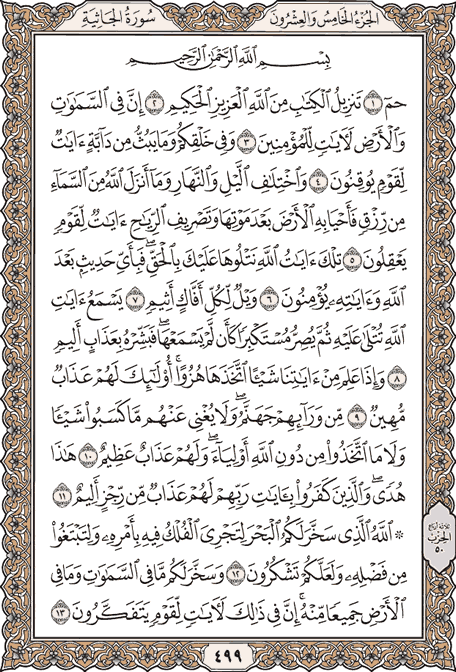 سُورَةُ الجَاثِيَةِ
الجُزْءُ الخَامِسُ وَالعِشْرُونَ
بِسْمِ اللَّهِ الرَّحْمَٰنِ الرَّحِيمِ
حمٓ ١ تَنزِيلُ الْكِتَابِ مِنَ اللَّهِ الْعَزِيزِ الْحَكِيمِ ٢ إِنَّ فِي السَّمَاوَاتِ
وَالْأَرْضِ لَآيَاتٍ لِّلْمُؤْمِنِينَ ٣ وَفِي خَلْقِكُمْ وَمَا يَبُثُّ مِن دَابَّةٍ ءَايَاتٌ
لِّقَوْمٍ يُوقِنُونَ ٤ وَاخْتِلَافِ اللَّيْلِ وَالنَّهَارِ وَمَا أَنزَلَ اللَّهُ مِنَ السَّمَاءِ
مِن رِّزْقٍ فَأَحْيَا بِهِ الْأَرْضَ بَعْدَ مَوْتِهَا وَتَصْرِيفِ الرِّيَاحِ ءَايَاتٌ لِّقَوْمٍ
يَعْقِلُونَ ٥ تِلْكَ ءَايَاتُ اللَّهِ نَتْلُوهَا عَلَيْكَ بِالْحَقِّ ۖ فَبِأَيِّ حَدِيثٍ بَعْدَ
اللَّهِ وَءَايَاتِهِ يُؤْمِنُونَ ٦ وَيْلٌ لِّكُلِّ أَفَّاكٍ أَثِيمٍ ٧ يَسْمَعُ ءَايَاتِ
اللَّهِ تُتْلَىٰ عَلَيْهِ ثُمَّ يُصِرُّ مُسْتَكْبِرًا كَأَن لَّمْ يَسْمَعْهَا ۖ فَبَشِّرْهُ بِعَذَابٍ أَلِيمٍ
٨ وَإِذَا عَلِمَ مِنْ ءَايَاتِنَا شَيْئًا اتَّخَذَهَا هُزُوًا ۚ أُولَٰئِكَ لَهُمْ عَذَابٌ
مُّهِينٌ ٩ مِّن وَرَائِهِمْ جَهَنَّمُ ۖ وَلَا يُغْنِي عَنْهُم مَّا كَسَبُوا شَيْئًا
وَلَا مَا اتَّخَذُوا مِن دُونِ اللَّهِ أَوْلِيَاءَ ۖ وَلَهُمْ عَذَابٌ عَظِيمٌ ١٠ هَٰذَا
هُدًى ۖ وَالَّذِينَ كَفَرُوا بِآيَاتِ رَبِّهِمْ لَهُمْ عَذَابٌ مِّن رِّجْزٍ أَلِيمٌ ١١
۞ اللَّهُ الَّذِي سَخَّرَ لَكُمُ الْبَحْرَ لِتَجْرِيَ الْفُلْكُ فِيهِ بِأَمْرِهِ وَلِتَبْتَغُوا
مِن فَضْلِهِ وَلَعَلَّكُمْ تَشْكُرُونَ ١٢ وَسَخَّرَ لَكُم مَّا فِي السَّمَاوَاتِ وَمَا فِي
الْأَرْضِ جَمِيعًا مِّنْهُ ۚ إِنَّ فِي ذَٰلِكَ لَآيَاتٍ لِّقَوْمٍ يَتَفَكَّرُونَ ١٣
ثلاثة أرباع
الحزب
٥٠
٤٩٩